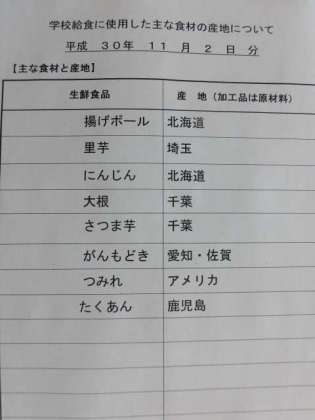 学校給食に使用した主な食材の産地について
平成 30年 11 月 2 日 分
【主な食材と産地】
生鮮食品 産 地（加工品は原材料）
揚げボール 北海道
里芋 埼玉
にんじん 北海道
大根 千葉
さつま芋 千葉
がんもどき 愛知・佐賀
つみれ アメリカ
たくあん 鹿児島